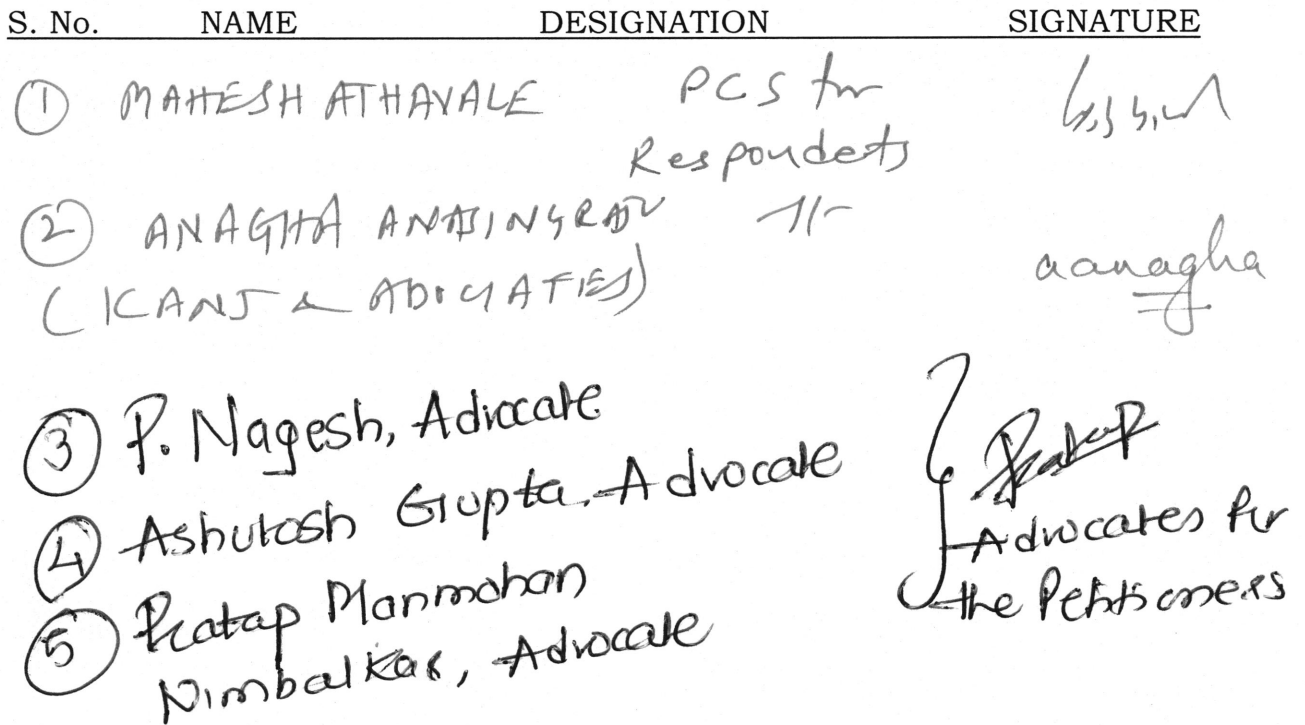 S. No. NAME DESIGNATION SIGNATURE
① MAHESH ATHAVALE PCS for
Respondets
② ANAGHA ANASINGRAJU -11-
aanagha
(KANJ &
③ P. Nagesh, Advocate
④ Ashutosh Gupta, Advocate
⑤ Pratap Manmohan
Nimbalkar, Advocate
Pratap
Advocates for
the Petitioners